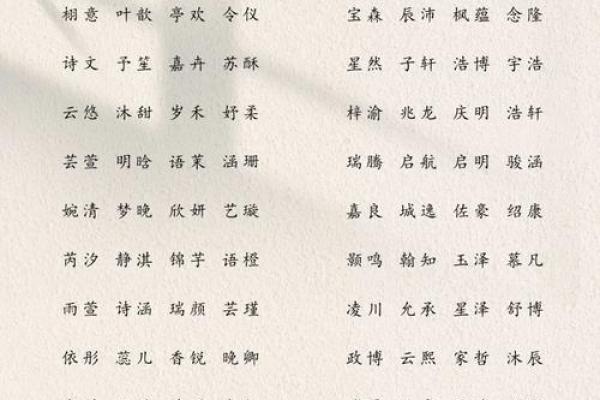 栩意 叶歆 亭欢 令仪
诗文 予笙 嘉卉 苏酥
云悠 沐甜 岁禾 妤柔
芸萱 明晗 语茉 涵珊
婉清 梦晚 欣妍 艺璇
芮汐 静淇 锦芋 语橙
雨萱 诗涵 瑞颜 芸瑾
依彤 蕊儿 香锐 晚卿
宝森 辰沛 枫蕴 念隆
星然 子轩 浩博 宇浩
梓渝 兆龙 庆明 浩轩
瑞腾 启航 启明 骏涵
嘉良 城逸 佐豪 绍康
颢鸣 翰知 玉泽 慕凡
凌川 允承 星泽 舒博
政博 云熙 家哲 沐辰